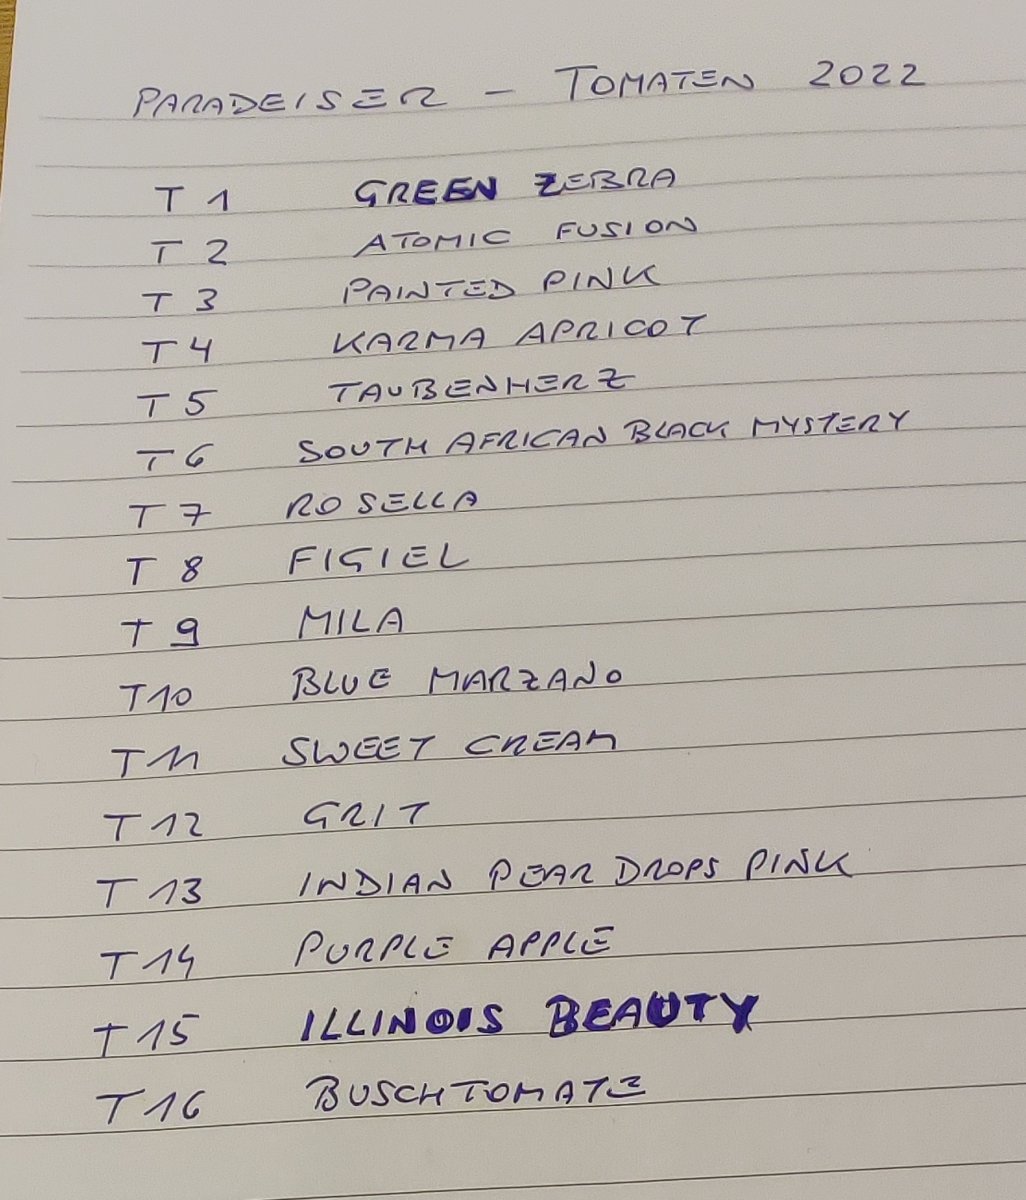 PARADEISER - TOMATEN 2022
T 1 GREEN ZEBRA
T 2 ATOMIC FUSION
T 3 PAINTED PINK
T 4 KARMA APRICOT
T 5 TAUBENHERZ
T 6 SOUTH AFRICAN BLACK MYSTERY
T 7 ROSELLA
T 8 FIGIEL
T 9 MILA
T10 BLUE MARZANO
T11 SWEET CREAM
T12 GRIT
T13 INDIAN PEAR DROPS PINK
T14 PURPLE APPLE
T15 ILLINOIS BEAUTY
T16 BUSCHTOMATE